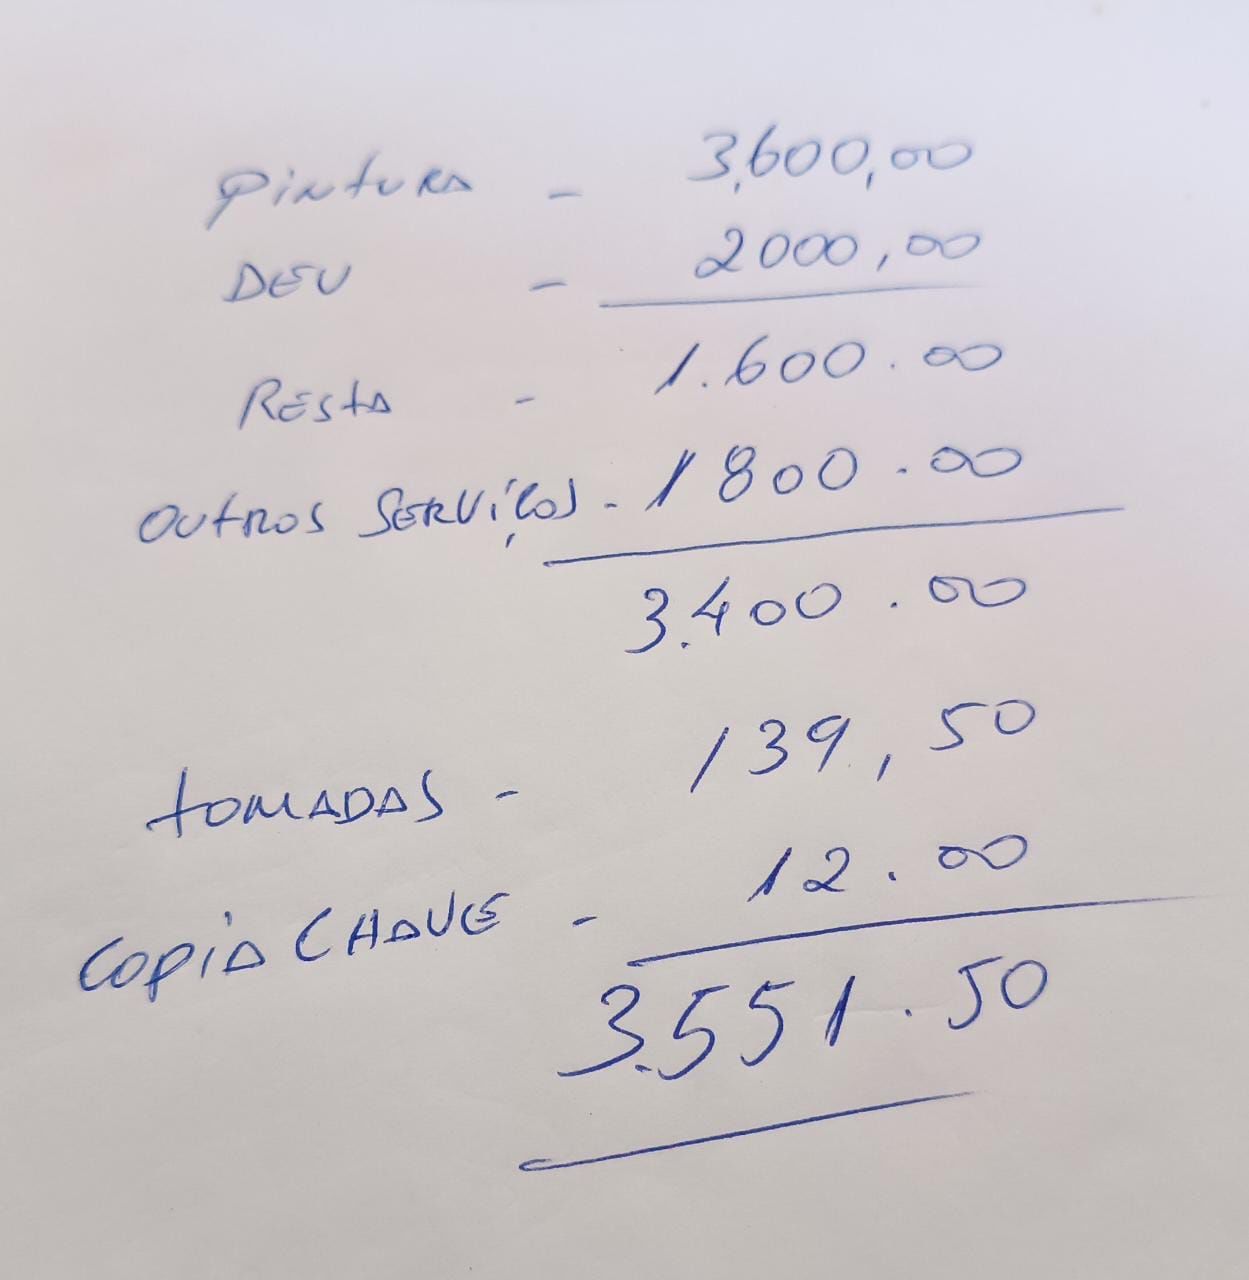 PINTURA - 3,600,00
DEU - 2000,00
RESTA - 1.600.00
OUTROS SERVIÇOS - 1800.00
3.400.00
TOMADAS - 139,50
COPIA CHAVE - 12.00
3.551.50